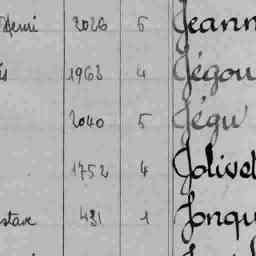 Henri 2026 5 Jeann
1963 4 Jégou
2040 5 Jégu
1752 4 Jolivet
stave 481 1 Jonqu